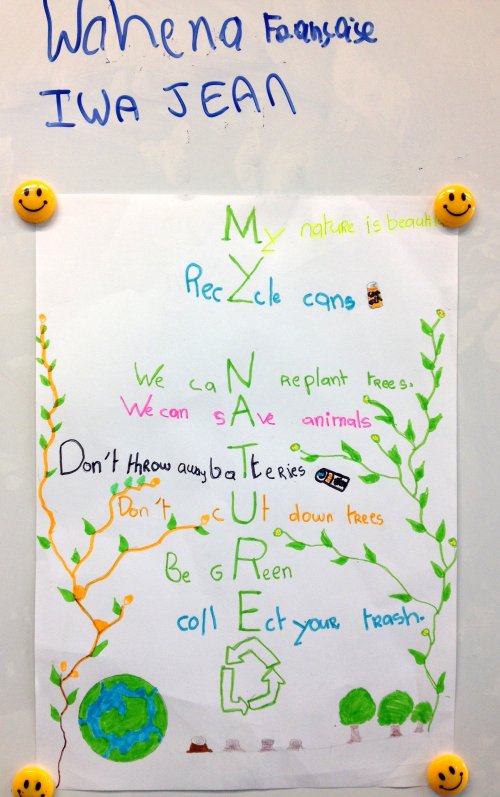 Wahena Française
IWA JEAN
My nature is beautiful
RecYcle cans
We caN Replant trees.
We can sAve animals
Don't throw away baTteries
Don't cUt down trees
Be GReen
collEct your trash.